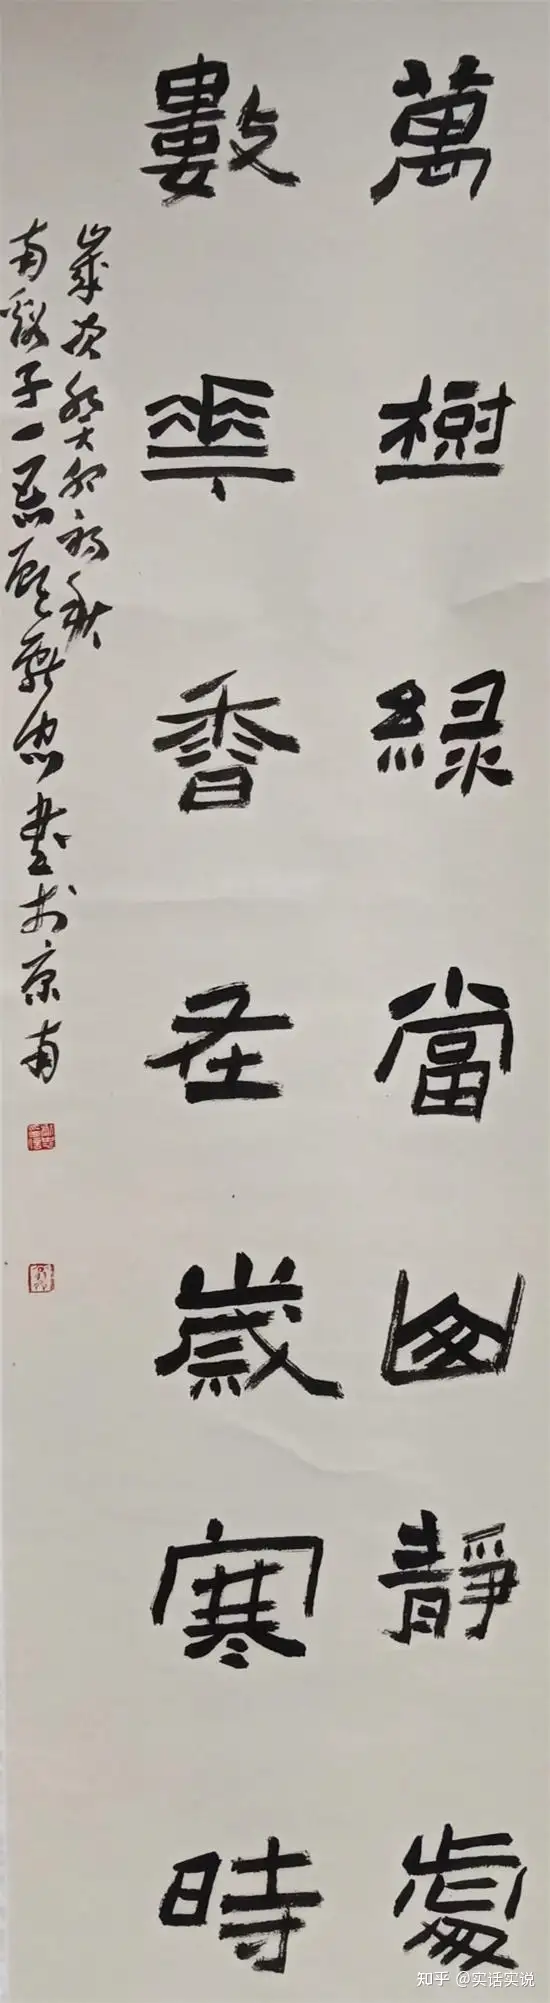 萬樹綠當幽靜處
數華香在歲寒時
歲次癸卯初秋
南谿子一忠書於京南
知乎 @实话实说